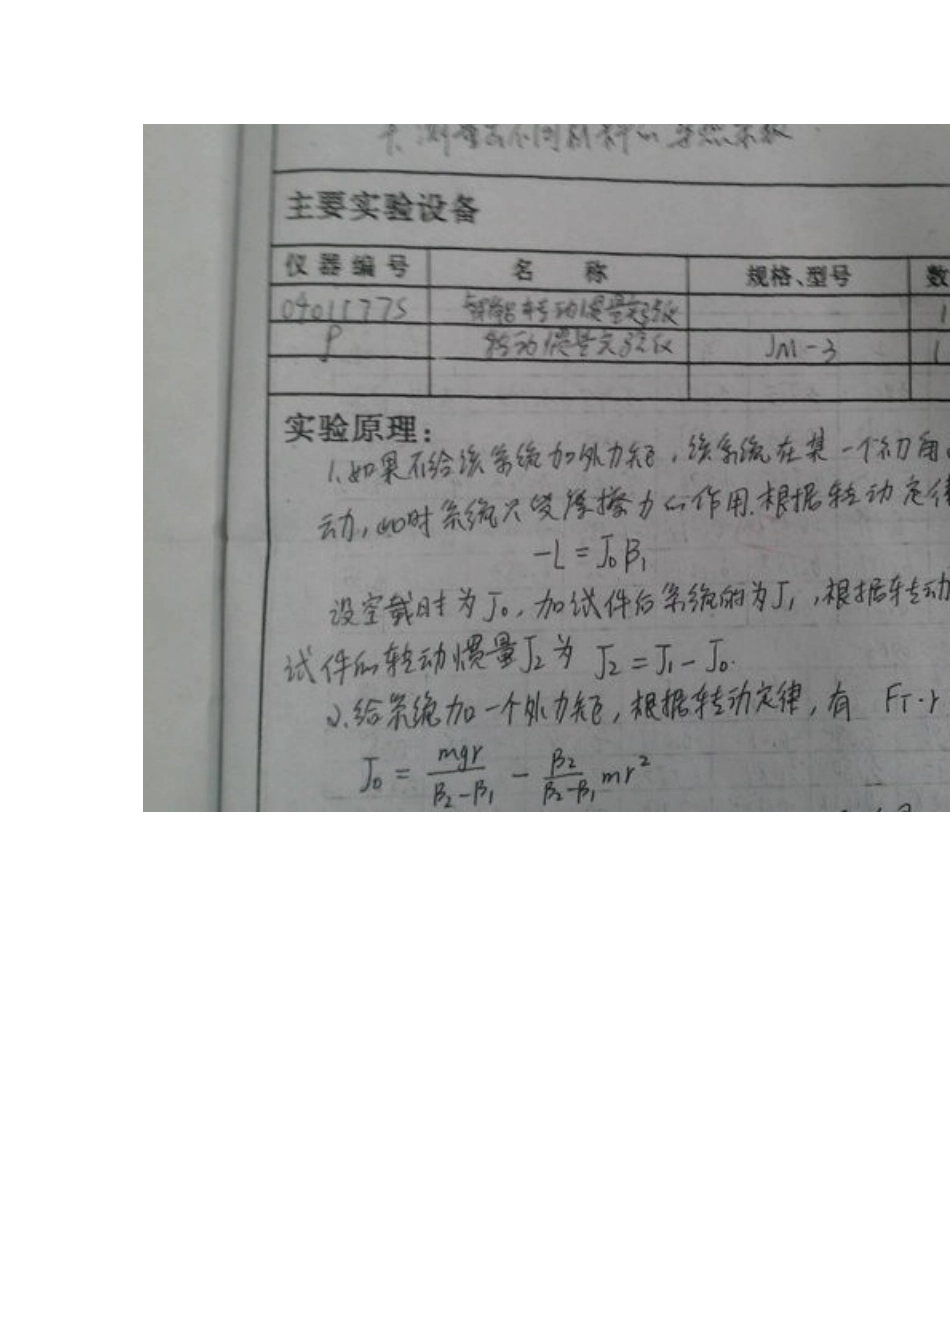 主要实验设备
仪器编号 名称 规格、型号 数
04011775 智能转动惯量实验仪 1
P 转动惯量实验仪 JM-3 1
实验原理：
1.如果不给该系统加外力矩，该系统在某一个初角
动，此时系统只受摩擦力的作用.根据转动定律
-L = J₀β₁
设空载时为J₀，加试件后系统的为J₁，根据转动
试件的转动惯量J₂为 J₂ = J₁ - J₀.
2.给系统加一个外力矩，根据转动定律，有 F_T·r
J₀ = mgr/(β₂-β₁) - β₂/(β₂-β₁) mr²